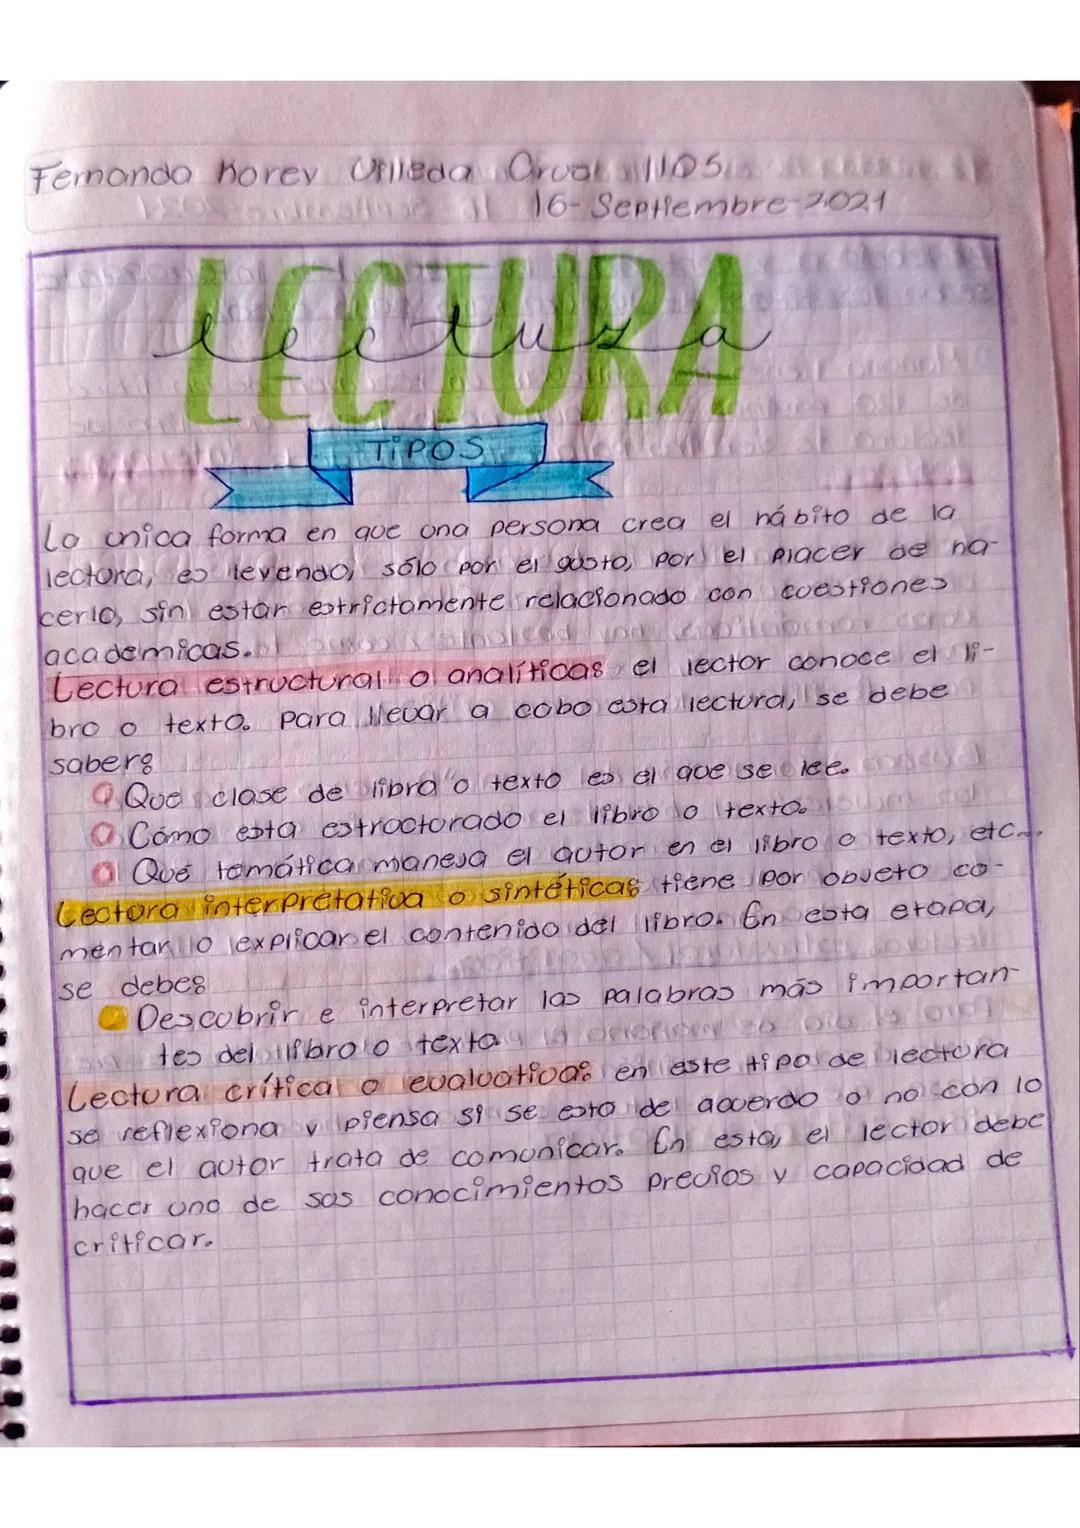 Fernando Korev Urlleda Cruz 1105
16-Septiembre-2021
LECTURA
lectura
TIPOS
La unica forma en que una persona crea el hábito de la
lectura, es leyendo, sólo por el gusto, por el placer de ha-
cerlo, sin estar estrictamente relacionado con cuestiones
academicas.
Lectura estructural o analítica: el lector conoce el li-
bro o texto. Para llevar a cabo esta lectura, se debe
saber:
Que clase de libro o texto es el que se lee.
Cómo esta estructurado el libro o texto.
Qué temática maneja el autor en el libro o texto, etc...
Lectura interpretativa o sintética: tiene por objeto co-
mentar o explicar el contenido del libro. En esta etapa,
se debe:
Descubrir e interpretar las palabras más importan-
tes del libro o texto
Lectura crítica o evaluativa: en este tipo de lectura
se reflexiona y piensa si se esta de acuerdo o no con lo
que el autor trata de comunicar. En esta, el lector debe
hacer uno de sus conocimientos previos y capacidad de
criticar.